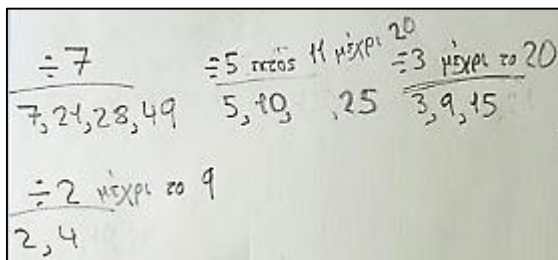 ÷7
7,21,28,49
÷5 εκτός 11 μέχρι 20
5,10, ,25
÷3 μέχρι το 20
3,9,15
÷2 μέχρι το 9
2,4